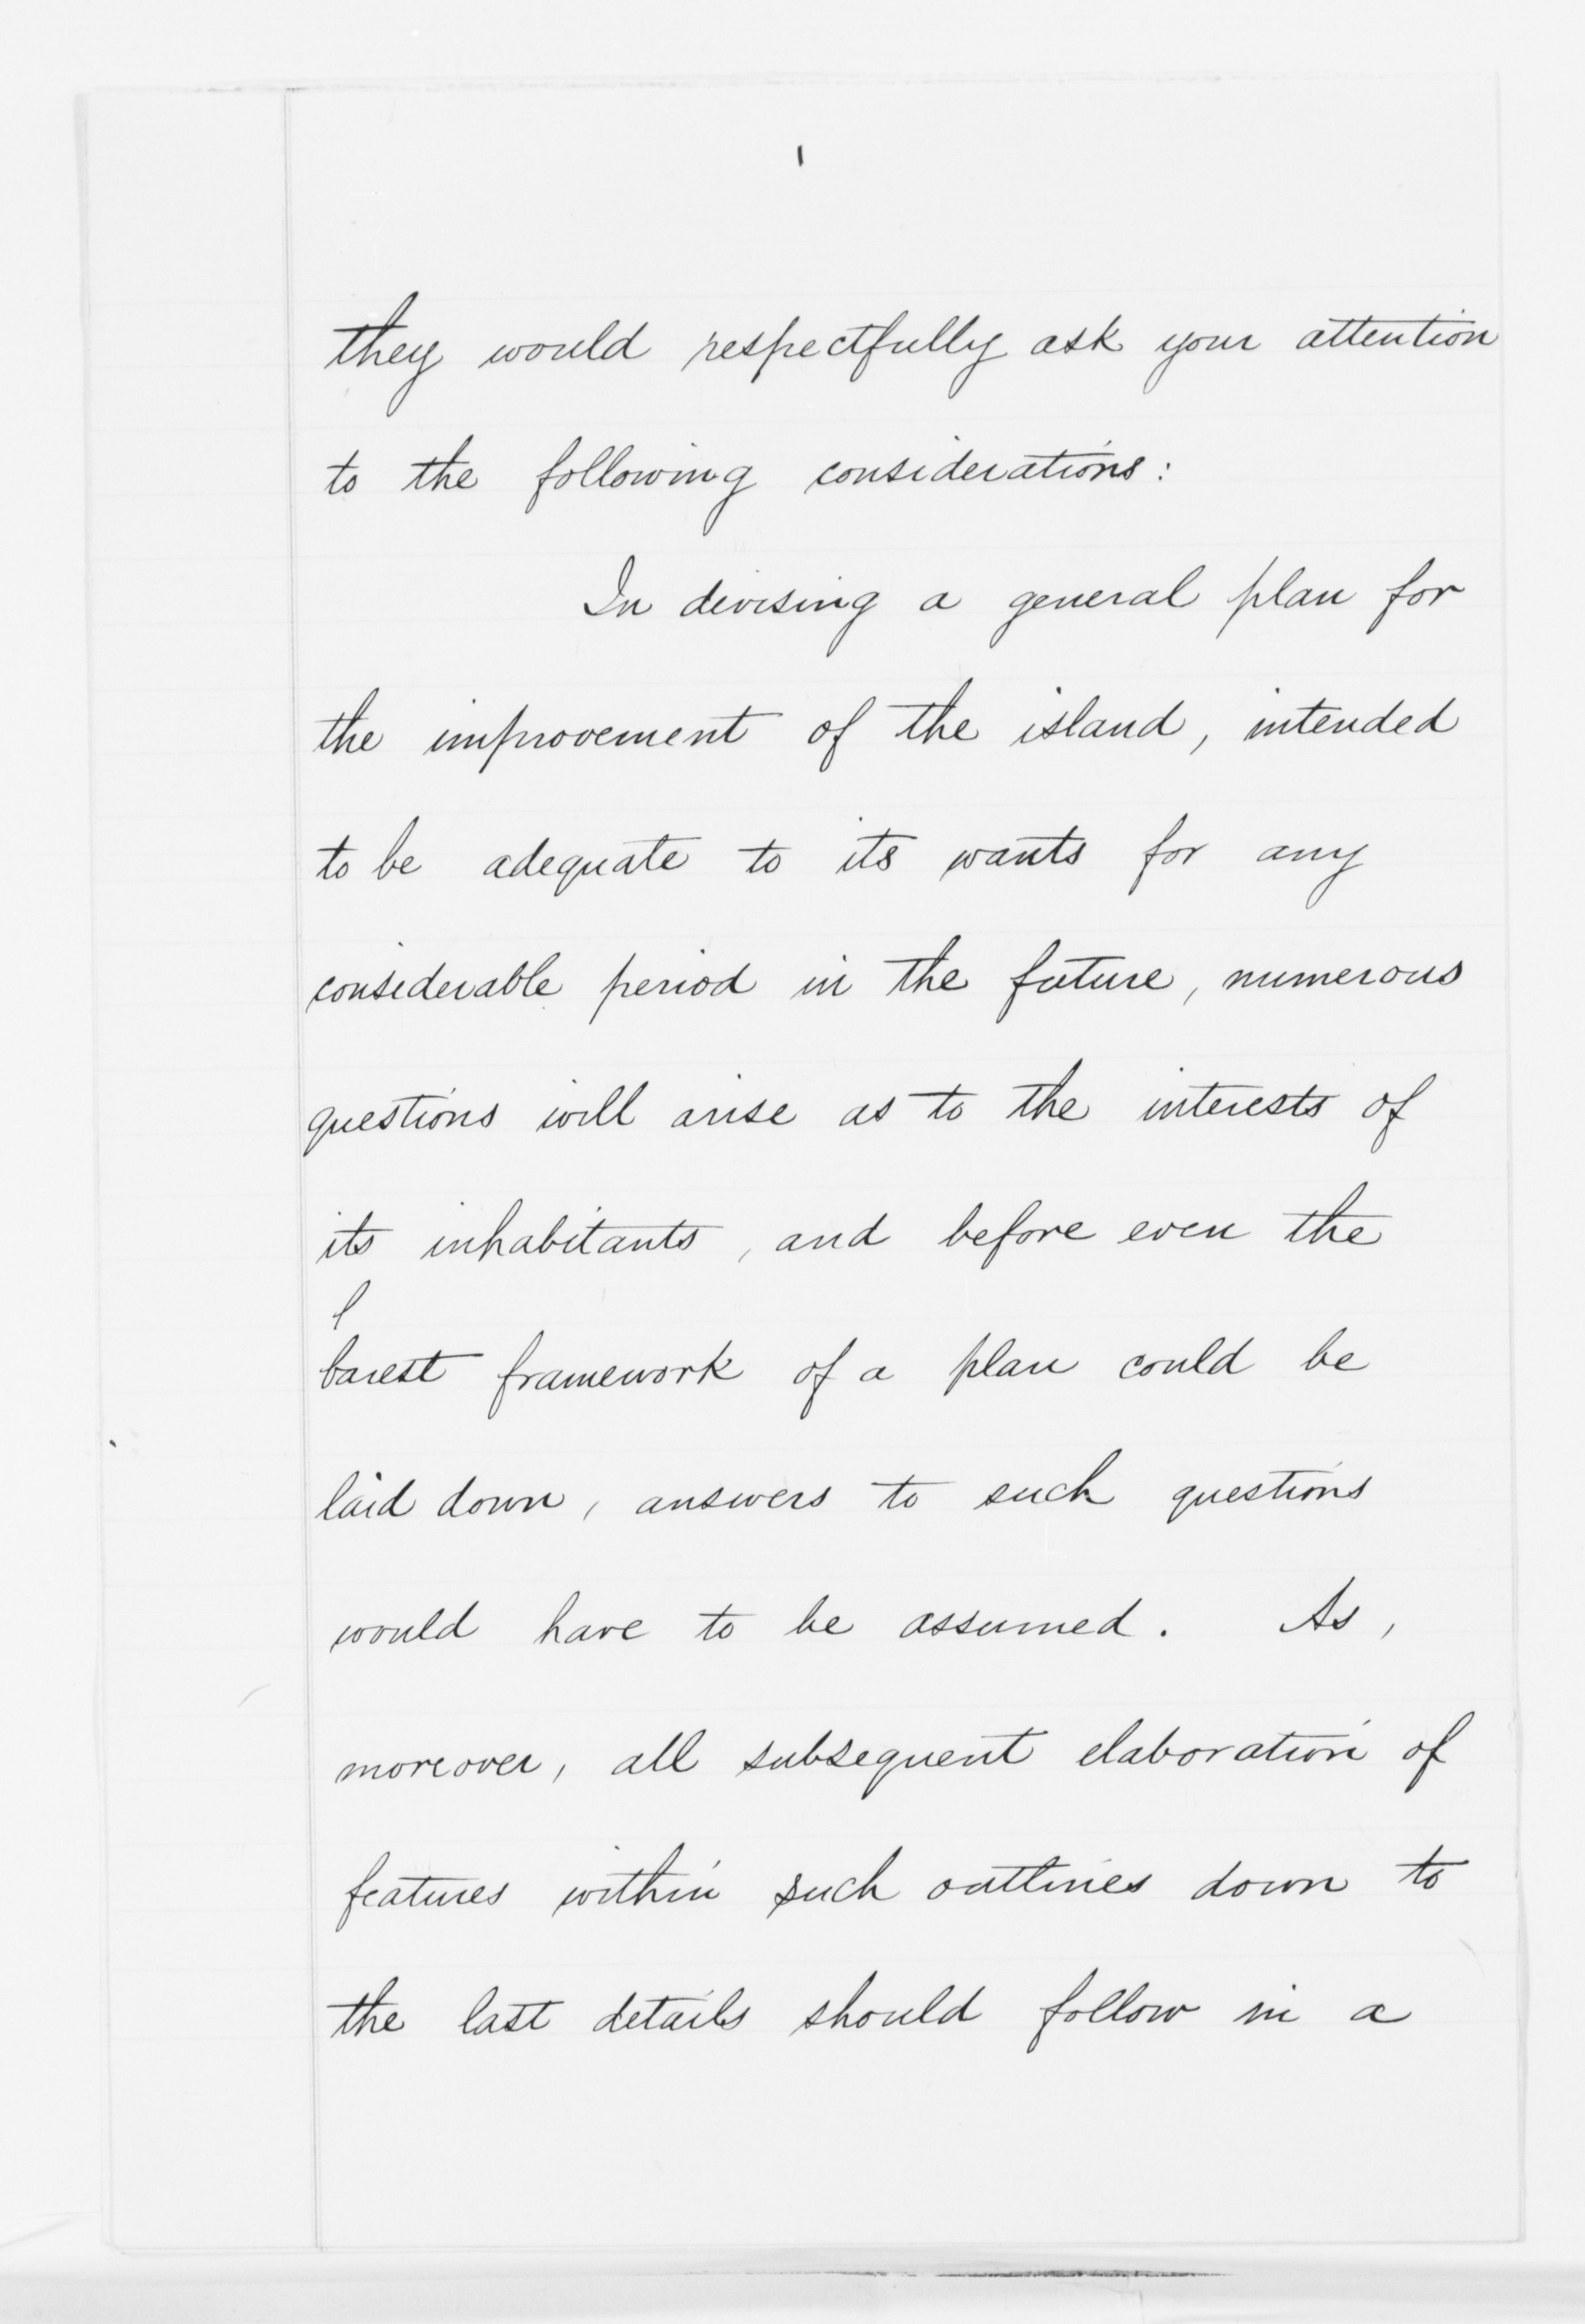 they would respectfully ask your attention
to the following considerations:
In devising a general plan for
the improvement of the island, intended
to be adequate to its wants for any
considerable period in the future, numerous
questions will arise as to the interests of
its inhabitants, and before even the
barest framework of a plan could be
laid down, answers to such questions
would have to be assumed. As,
moreover, all subsequent elaboration of
features within such outlines down to
the last details should follow in a